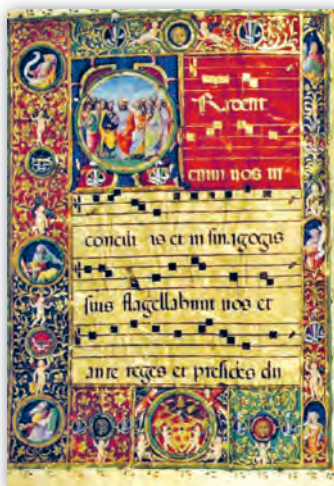 Tradent
enim vos in
conciliis et in sinagogis
suis flagellabunt vos et
ante reges et presides du